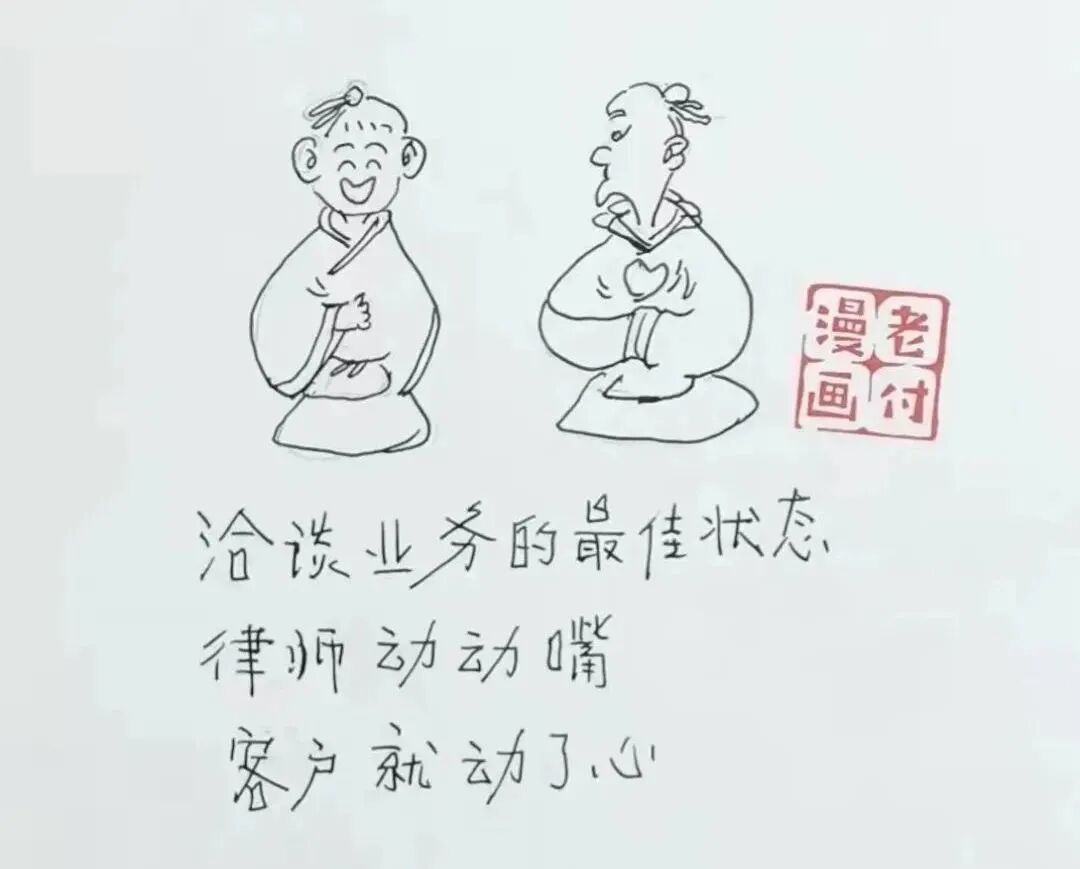 老付
漫画
洽谈业务的最佳状态
律师动动嘴
客户就动了心